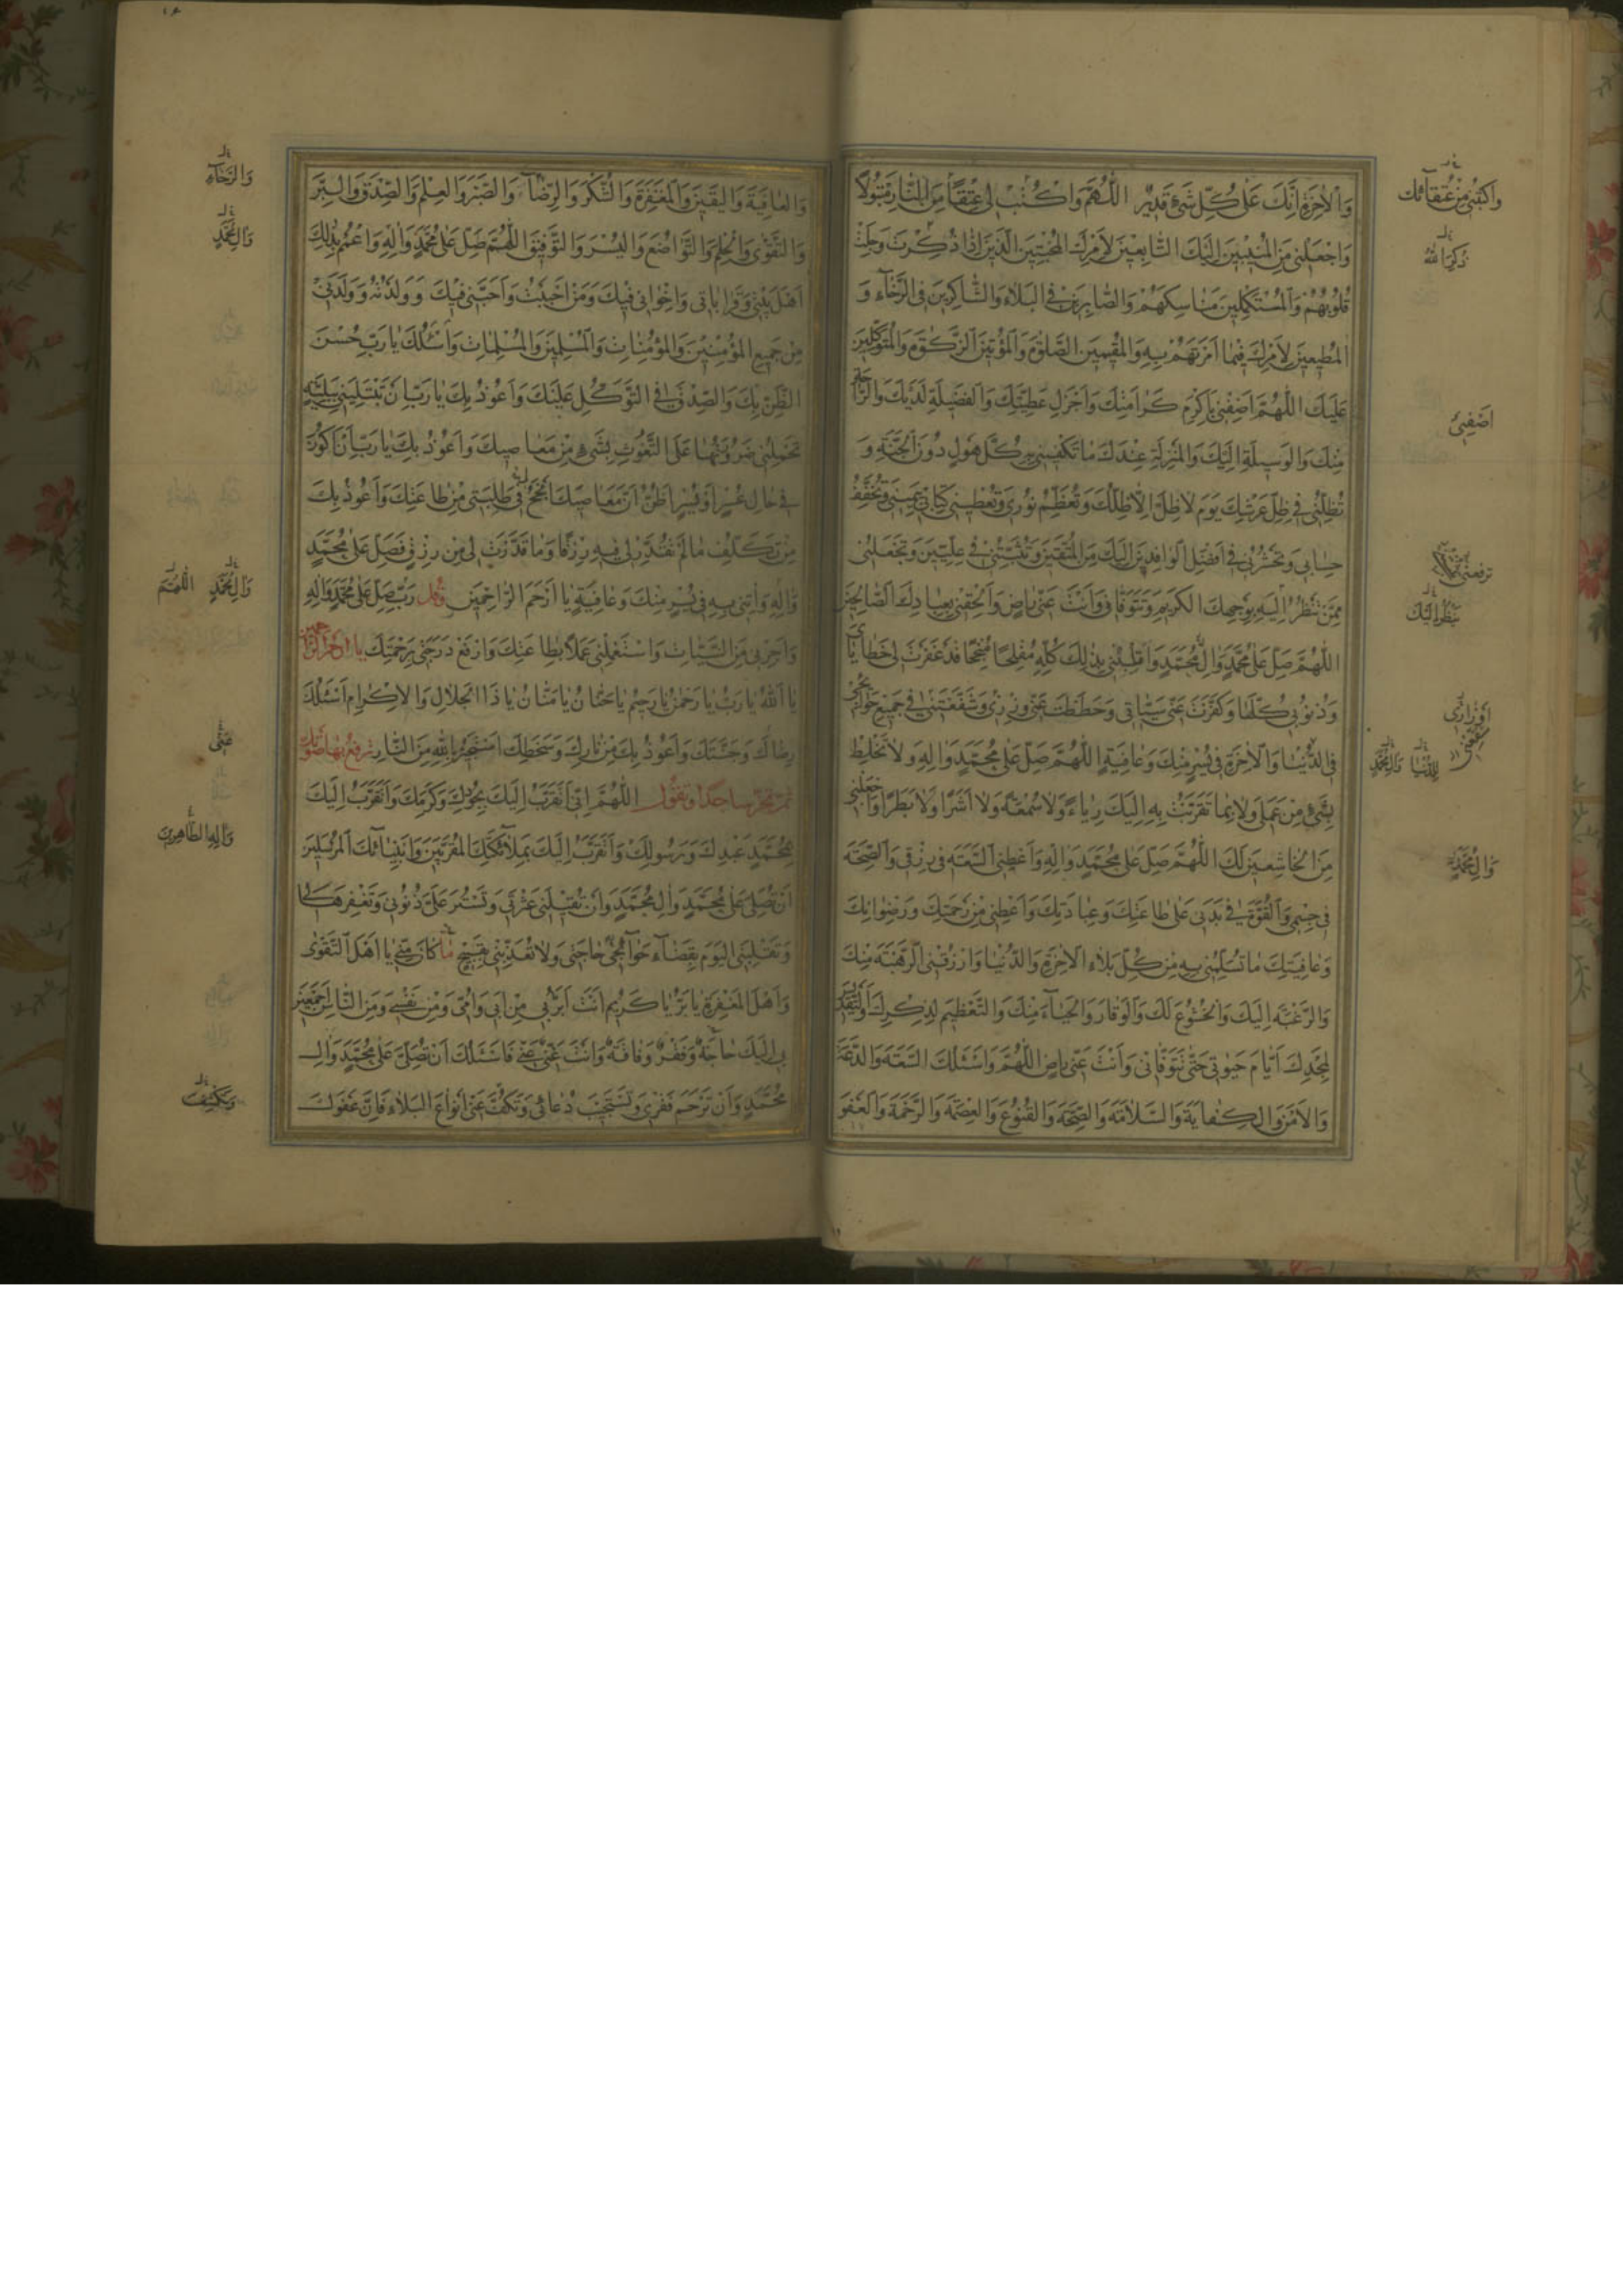 وَالْاٰخِرَةِ اِنَّكَ عَلٰى كُلِّ شَیْءٍ قَدِيْرٌ اَللّٰهُمَّ وَاكْتُبْ لِى عِتْقًا مِنَ النَّارِ مَقْبُولًا
وَاجْعَلْنِى مِنَ الْمُنِيْبِيْنَ اِلَيْكَ التَّابِعِيْنَ لِاَمْرِكَ الْمُخْبِتِيْنَ الَّذِيْنَ اِذَا ذُكِرْتَ وَجِلَتْ
قُلُوبُهُمْ وَالْمُسْتَكْمِلِيْنَ مَنَاسِكَهُمْ وَالصَّابِرِيْنَ فِى الْبَلَاءِ وَالشَّاكِرِيْنَ فِى الرَّخَاءِ وَ
الْمُطِيْعِيْنَ لِاَمْرِكَ فِيْمَا اَمَرْتَهُمْ بِهِ وَالْمُقِيْمِيْنَ الصَّلٰوةَ وَالْمُؤْتِيْنَ الزَّكٰوةَ وَالْمُتَوَكِّلِيْنَ
عَلَيْكَ اَللّٰهُمَّ اَضِفْنِى بِاَكْرَمِ كَرَامَتِكَ وَاَجْزَلِ عَطِيَّتِكَ وَالْفَضِيْلَةِ لَدَيْكَ وَالرَّاحَةِ
مِنْكَ وَالْوَسِيْلَةِ اِلَيْكَ وَالْمَنْزِلَةِ عِنْدَكَ مَا تَكْفِيْنِى بِهِ كُلَّ هَوْلٍ دُوْنَ الْجَنَّةِ وَ
تُظِلُّنِى فِى ظِلِّ عَرْشِكَ يَوْمَ لَا ظِلَّ اِلَّا ظِلُّكَ وَتُعَظِّمُ نُوْرِى وَتُعْطِيْنِى كِتَابِى بِيَمِيْنِى وَتُخَفِّفُ
حِسَابِى وَتَحْشُرُنِى فِى اَفْضَلِ الْوَافِدِيْنَ اِلَيْكَ مِنَ الْمُتَّقِيْنَ وَتُثَبِّتُنِى فِى عِلِّيِّيْنَ وَتَجْعَلُنِى
مِمَّنْ تَنْظُرُ اِلَيْهِ بِوَجْهِكَ الْكَرِيْمِ وَتَتَوَفَّانِى وَاَنْتَ عَنِّى رَاضٍ وَاَلْحِقْنِى بِعِبَادِكَ الصَّالِحِيْنَ
اَللّٰهُمَّ صَلِّ عَلٰى مُحَمَّدٍ وَاٰلِ مُحَمَّدٍ وَاقْلِبْنِى بِذٰلِكَ كُلِّهِ مُفْلِحًا مُنْجِحًا قَدْ غَفَرْتَ لِى خَطَايَاىَ
وَذُنُوْبِى كُلَّهَا وَكَفَّرْتَ عَنِّى سَيِّئَاتِى وَحَطَطْتَ عَنِّى وِزْرِى وَشَفَّعْتَنِى فِى جَمِيْعِ حَوَائِجِى
فِى الدُّنْيَا وَالْاٰخِرَةِ فِى يُسْرٍ مِنْكَ وَعَافِيَةٍ اَللّٰهُمَّ صَلِّ عَلٰى مُحَمَّدٍ وَاٰلِهِ وَلَا تَخْلِطْ
بِشَیْءٍ مِنْ عَمَلِى وَلَا بِمَا تَقَرَّبْتُ بِهِ اِلَيْكَ رِيَاءً وَلَا سُمْعَةً وَلَا اَشَرًا وَلَا بَطَرًا وَاجْعَلْنِى
مِنَ الْخَاشِعِيْنَ لَكَ اَللّٰهُمَّ صَلِّ عَلٰى مُحَمَّدٍ وَاٰلِهِ وَاَعْطِنِى السَّعَةَ فِى رِزْقِى وَالصِّحَّةَ
فِى جِسْمِى وَالْقُوَّةَ فِى بَدَنِى عَلٰى طَاعَتِكَ وَعِبَادَتِكَ وَاَعْطِنِى مِنْ رَحْمَتِكَ وَرِضْوَانِكَ
وَعَافِيَتِكَ مَا تُسَلِّمُنِى بِهِ مِنْ كُلِّ بَلَاءِ الْاٰخِرَةِ وَالدُّنْيَا وَارْزُقْنِى الرَّهْبَةَ مِنْكَ
وَالرَّغْبَةَ اِلَيْكَ وَالْخُشُوْعَ لَكَ وَالْوَقَارَ وَالْحَيَاءَ مِنْكَ وَالتَّعْظِيْمَ لِذِكْرِكَ وَالتَّقْدِيْسَ
لِمَجْدِكَ اَيَّامَ حَيٰوتِى حَتّٰى تَتَوَفَّانِى وَاَنْتَ عَنِّى رَاضٍ اَللّٰهُمَّ وَاَسْئَلُكَ السَّعَةَ وَالدَّعَةَ
وَالْاَمْنَ وَالْكِفَايَةَ وَالسَّلَامَةَ وَالصِّحَّةَ وَالْقُنُوْعَ وَالْعِصْمَةَ وَالرَّحْمَةَ وَالْعَفْوَ
وَاكْتُبْنِى مِنْ عُتَقَائِكَ
ذُكِرَ اللّٰهُ
اَضِفْنِى
تَنْظُرُ اِلَيْكَ
اَوْزَارِى
لِلدُّنْيَا وَاٰلِ مُحَمَّدٍ
وَاٰلِ مُحَمَّدٍ
وَالْعَافِيَةَ وَالْيَقِيْنَ وَالْمَغْفِرَةَ وَالشُّكْرَ وَالرِّضَاءَ وَالصَّبْرَ وَالْعِلْمَ وَالصِّدْقَ وَالْبِرَّ
وَالتَّقْوٰى وَالْحِلْمَ وَالتَّوَاضُعَ وَالْيُسْرَ وَالتَّوْفِيْقَ اَللّٰهُمَّ صَلِّ عَلٰى مُحَمَّدٍ وَاٰلِهِ وَاعْمُمْ بِذٰلِكَ
اَهْلَ بَيْتِى وَقَرَابَاتِى وَاِخْوَانِى فِيْكَ وَمَنْ اَحْبَبْتُ وَاَحَبَّنِى فِيْكَ وَوَلَدْتُهُ وَوَلَدَنِى
مِنْ جَمِيْعِ الْمُؤْمِنِيْنَ وَالْمُؤْمِنَاتِ وَالْمُسْلِمِيْنَ وَالْمُسْلِمَاتِ وَاَسْئَلُكَ يَا رَبِّ حُسْنَ
الظَّنِّ بِكَ وَالصِّدْقَ فِى التَّوَكُّلِ عَلَيْكَ وَاَعُوْذُ بِكَ يَا رَبِّ اَنْ تَبْتَلِيَنِى بِبَلِيَّةٍ
تَحْمِلُنِى ضَرُوْرَتُهَا عَلَى التَّغَوُّثِ بِشَیْءٍ مِنْ مَعَاصِيْكَ وَاَعُوْذُ بِكَ يَا رَبِّ اَنْ اَكُوْنَ
فِى حَالِ عُسْرٍ اَوْ يُسْرٍ اَظُنُّ اَنَّ مَعَاصِيَكَ اَنْجَحُ لِى فِى طَلِبَتِى مِنْ طَاعَتِكَ وَاَعُوْذُ بِكَ
مِنْ تَكَلُّفِ مَا لَمْ تُقَدِّرْ لِى فِيْهِ رِزْقًا وَمَا قَدَّرْتَ لِى مِنْ رِزْقٍ فَصَلِّ عَلٰى مُحَمَّدٍ
وَاٰلِهِ وَاٰتِنِى بِهِ فِى يُسْرٍ مِنْكَ وَعَافِيَةٍ يَا اَرْحَمَ الرَّاحِمِيْنَ وَقُلْ رَبِّ صَلِّ عَلٰى مُحَمَّدٍ وَاٰلِهِ
وَاَجِرْنِى مِنَ السَّيِّئَاتِ وَاسْتَعْمِلْنِى عَمَلًا بِطَاعَتِكَ وَارْفَعْ دَرَجَتِى بِرَحْمَتِكَ يَا اَرْحَمَ الرَّاحِمِيْنَ
يَا اَللّٰهُ يَا رَبُّ يَا رَحْمٰنُ يَا رَحِيْمُ يَا حَنَّانُ يَا مَنَّانُ يَا ذَا الْجَلَالِ وَالْاِكْرَامِ اَسْئَلُكَ
رِضَاكَ وَجَنَّتَكَ وَاَعُوْذُ بِكَ مِنْ نَارِكَ وَسَخَطِكَ اَسْتَجِيْرُ بِاللّٰهِ مِنَ النَّارِ تَرْفَعُ بِهَا صَوْتَكَ
ثُمَّ تَخِرُّ سَاجِدًا وَتَقُوْلُ اَللّٰهُمَّ اِنِّى اَتَقَرَّبُ اِلَيْكَ بِجُوْدِكَ وَكَرَمِكَ وَاَتَقَرَّبُ اِلَيْكَ
بِمُحَمَّدٍ عَبْدِكَ وَرَسُوْلِكَ وَاَتَقَرَّبُ اِلَيْكَ بِمَلَائِكَتِكَ الْمُقَرَّبِيْنَ وَاَنْبِيَائِكَ الْمُرْسَلِيْنَ
اَنْ تُصَلِّىَ عَلٰى مُحَمَّدٍ وَاٰلِ مُحَمَّدٍ وَاَنْ تُقِيْلَنِى عَثْرَتِى وَتَسْتُرَ عَلَىَّ ذُنُوْبِى وَتَغْفِرَهَا
وَتَقْلِبَنِى الْيَوْمَ بِقَضَاءِ حَاجَتِى وَلَا تُعَذِّبَنِى بِقَبِيْحِ مَا كَانَ مِنِّى يَا اَهْلَ التَّقْوٰى
وَاَهْلَ الْمَغْفِرَةِ يَا بَرُّ يَا كَرِيْمُ اَنْتَ اَبَرُّ بِى مِنْ اَبِى وَاُمِّى وَمِنْ نَفْسِى وَمِنَ النَّاسِ اَجْمَعِيْنَ
بِى اِلَيْكَ حَاجَةٌ وَفَقْرٌ وَفَاقَةٌ وَاَنْتَ غَنِىٌّ عَنِّى فَاَسْئَلُكَ اَنْ تُصَلِّىَ عَلٰى مُحَمَّدٍ وَاٰلِ
مُحَمَّدٍ وَاَنْ تَرْحَمَ فَقْرِى وَتَسْتَجِيْبَ دُعَائِى وَتَكُفَّ عَنِّى اَنْوَاعَ الْبَلَاءِ فَاِنَّ عَفْوَكَ
وَالرَّخَاءَ
وَاٰلِ مُحَمَّدٍ
وَاٰلِ مُحَمَّدٍ اَللّٰهُمَّ
عَنِّى
وَاٰلِهِ الطَّاهِرِيْنَ
وَتَكْشِفَ